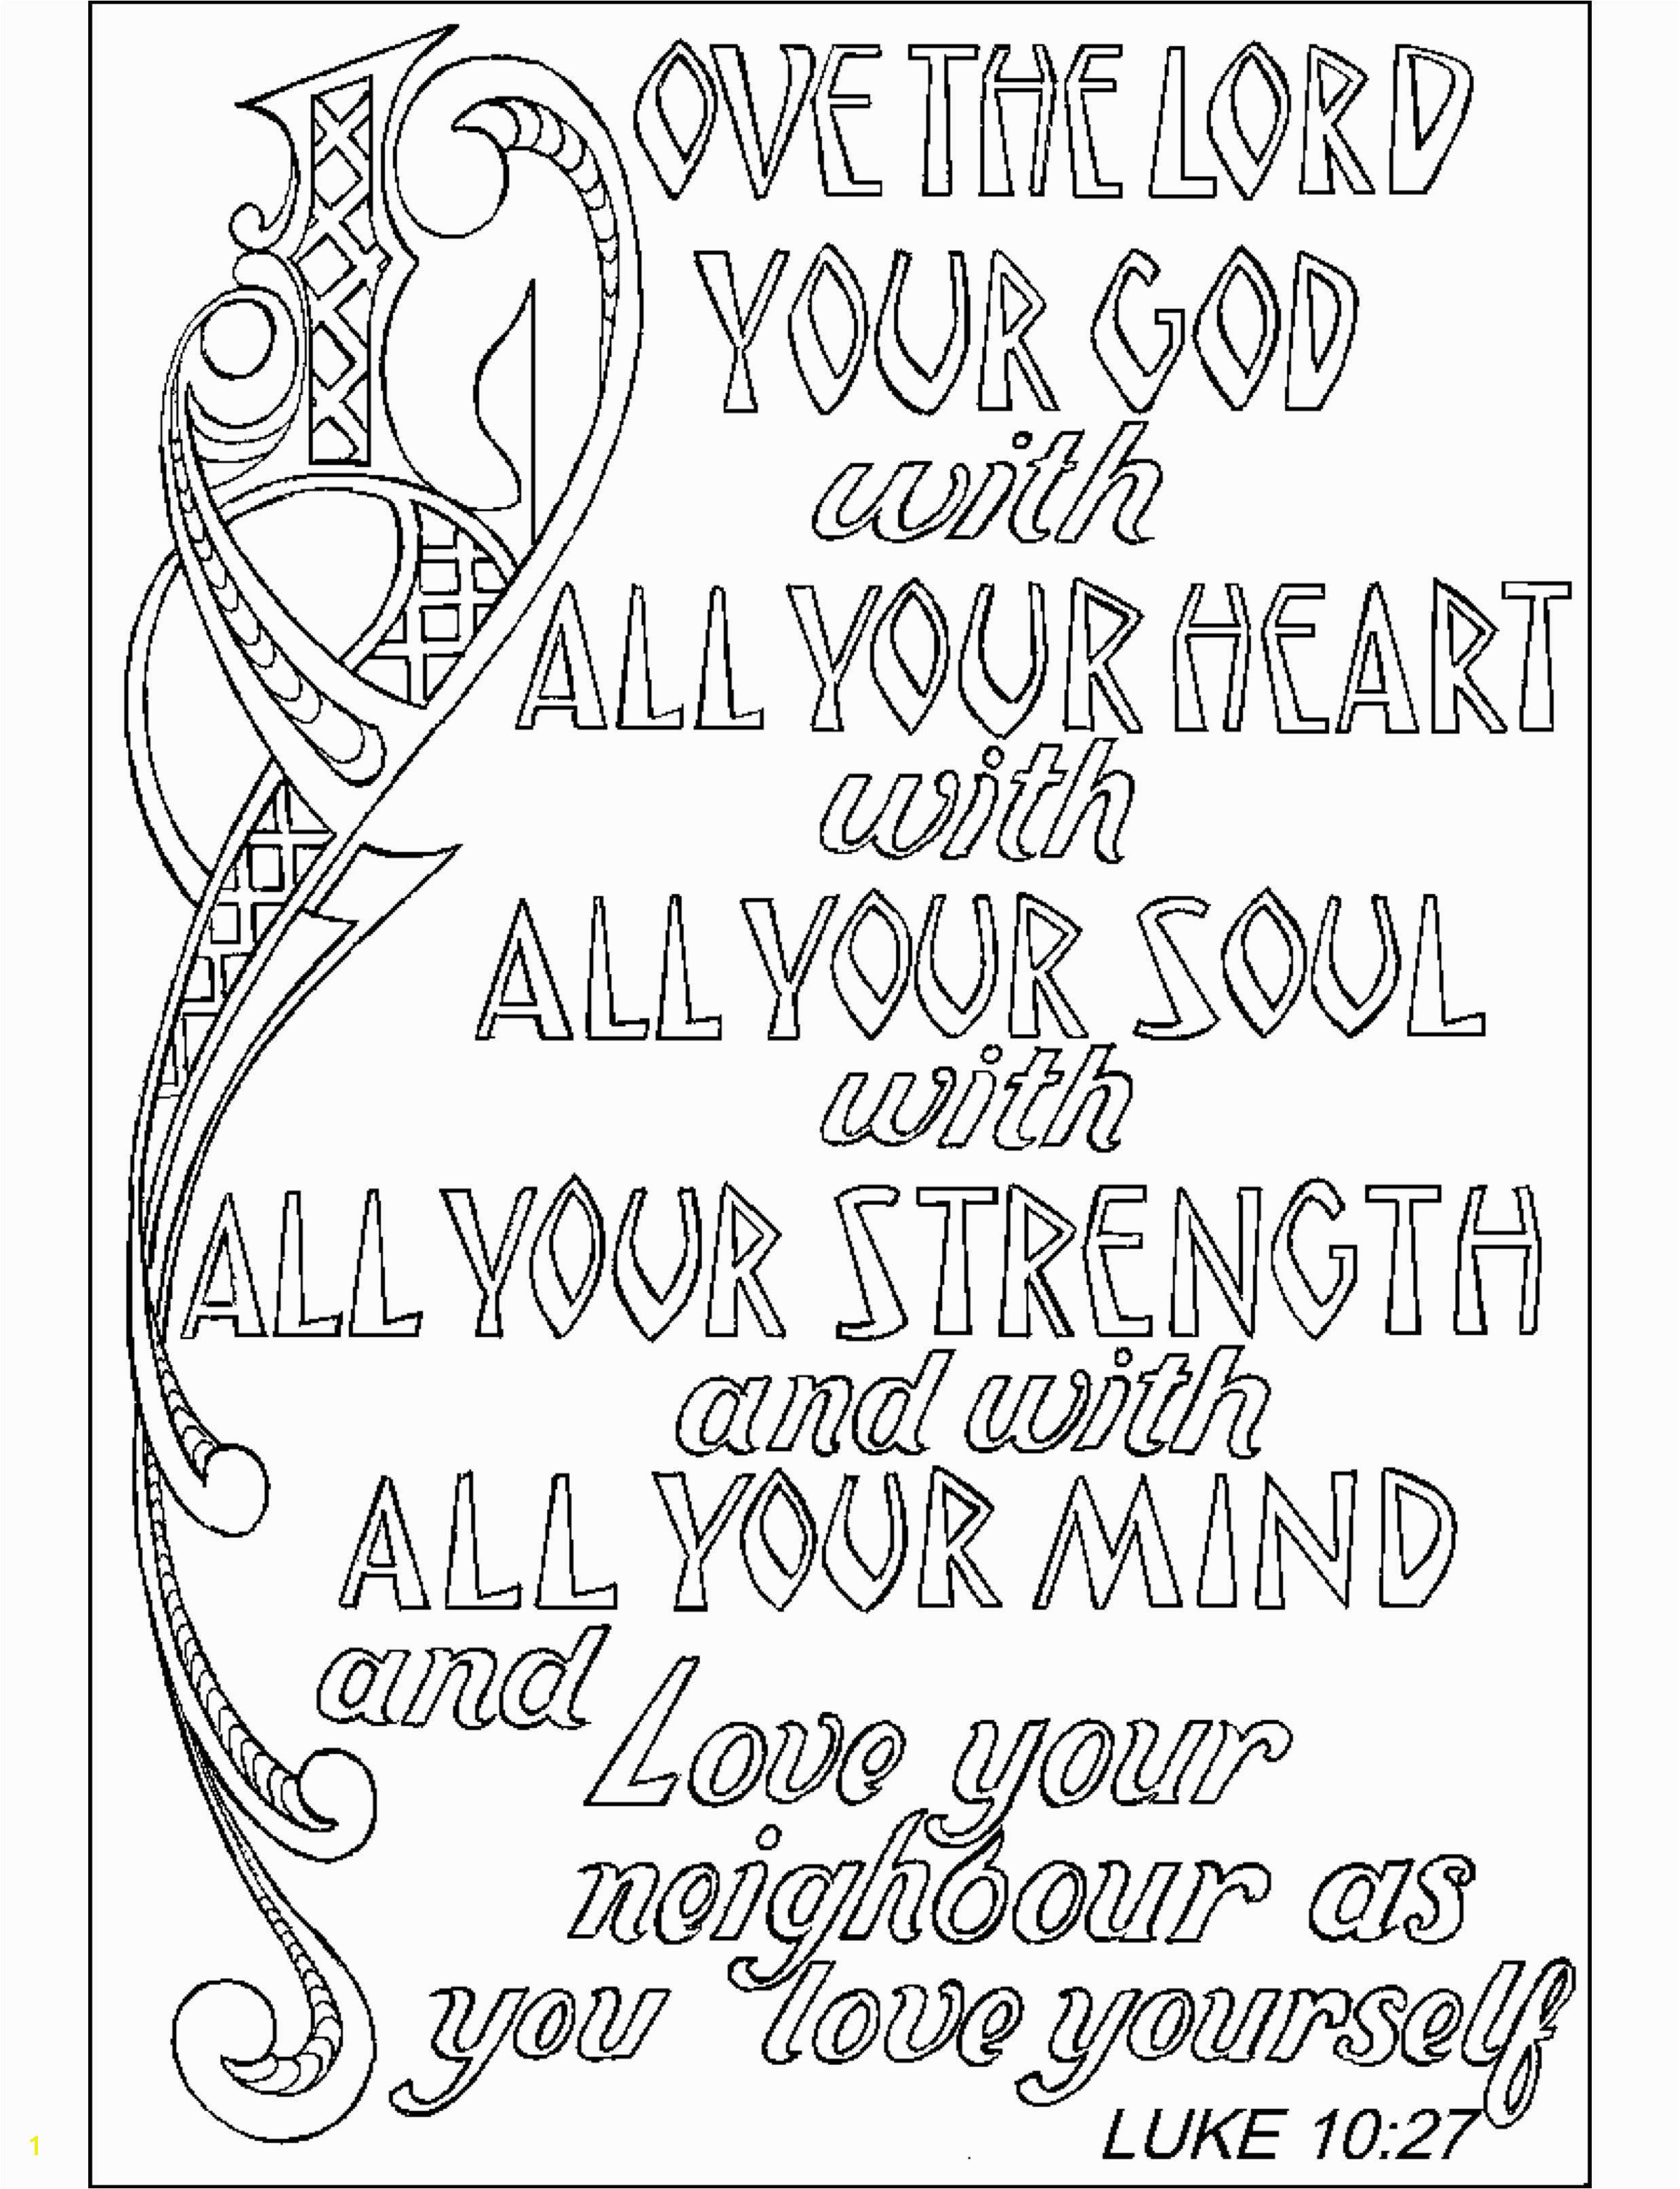 LOVE THE LORD
YOUR GOD
with
ALL YOUR HEART
with
ALL YOUR SOUL
with
ALL YOUR STRENGTH
and with
ALL YOUR MIND
and Love your
neighbour as
you love yourself
LUKE 10:27
1